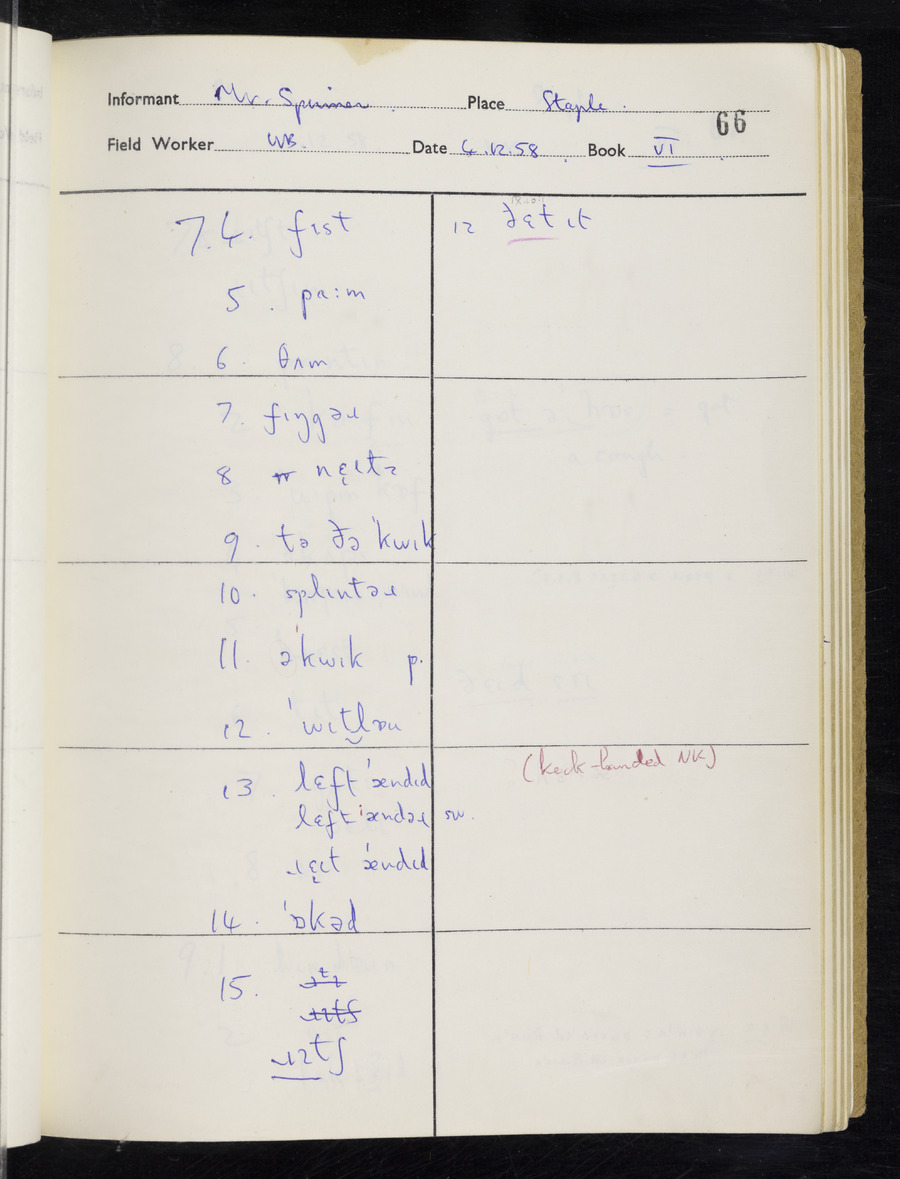 Informant Mr. Spinner Place Staple.
66
Field Worker WB. Date 4.12.58 Book VI
7.4. fɪst
5. pɑ:m
6. θʌm
7. fɪŋgəɹ
8
9. tə ðə 'kwɪk
10. splɪntəɹ
11. ə'kwɪk p.
12.
13. lɛft 'ændɪd
lɛft 'ændəɹ sw.
ɹɛ̨ɪt 'ændɪd
14. 'ɒkəd
15.
12 ðɛt ɪt
(keck-handed NK)